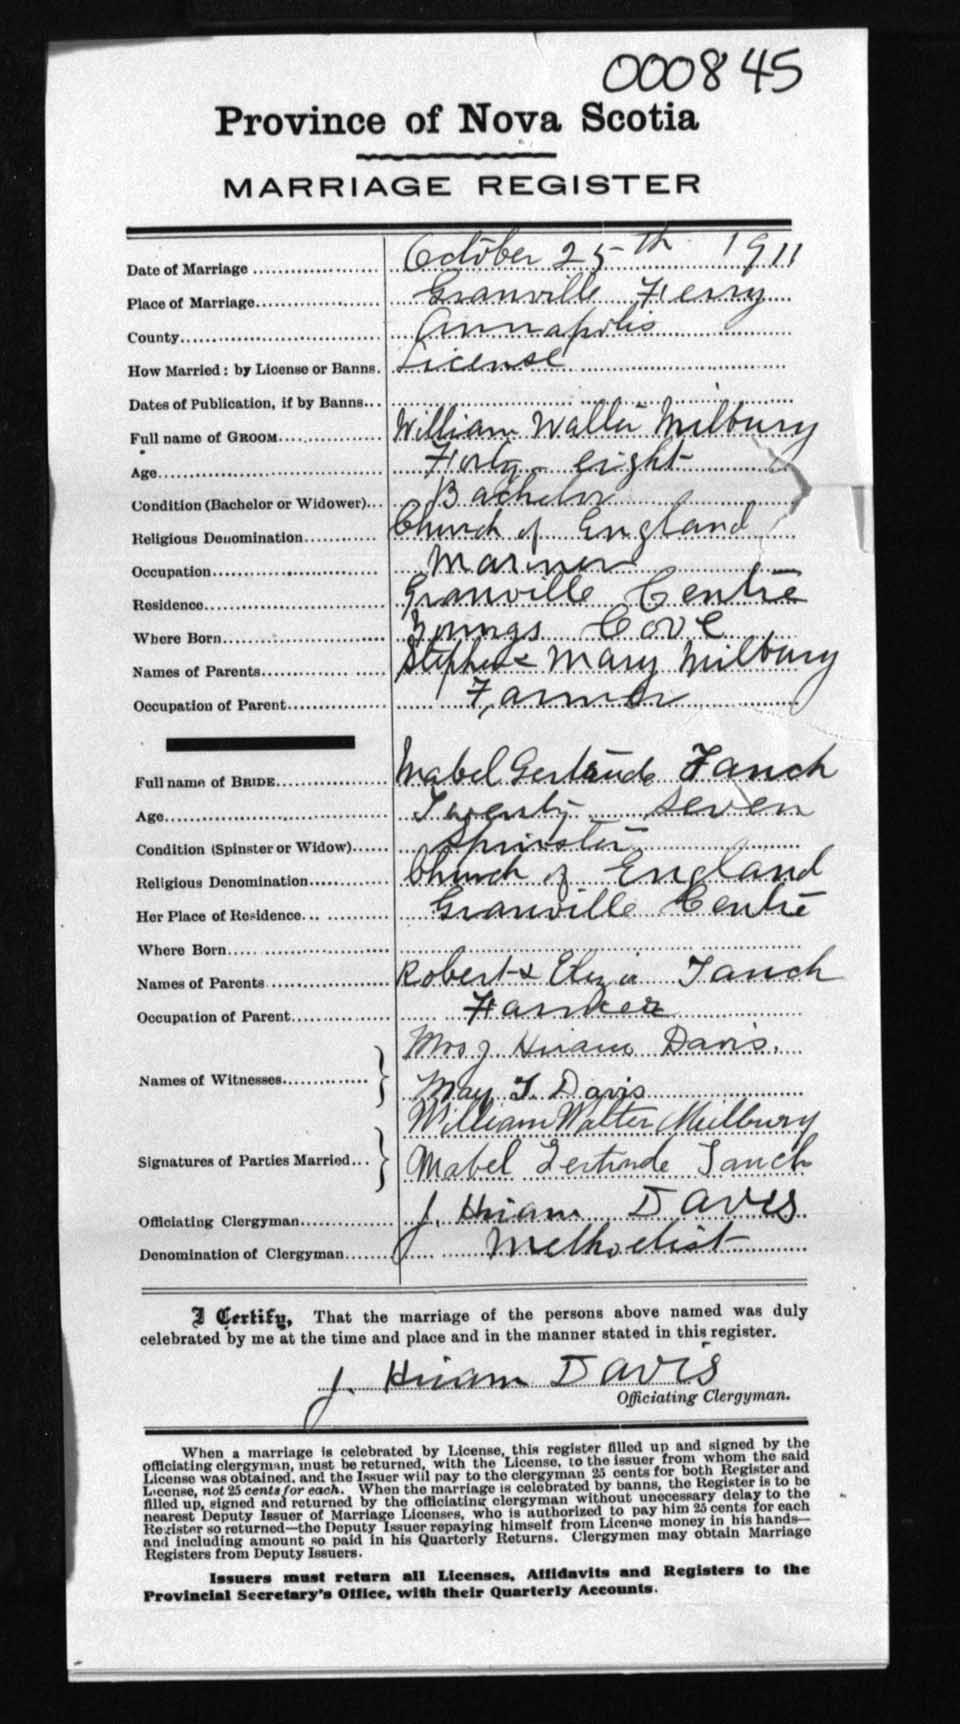 000845
Province of Nova Scotia
MARRIAGE REGISTER
Date of Marriage October 25th 1911
Place of Marriage Granville Ferry
County Annapolis
How Married: by License or Banns. License
Dates of Publication, if by Banns
Full name of GROOM William Walter Milbury
Age Forty-eight
Condition (Bachelor or Widower) Bachelor
Religious Denomination Church of England
Occupation Mariner
Residence Granville Centre
Where Born Youngs Cove
Names of Parents Stephen & Mary Milbury
Occupation of Parent Farmer
Full name of BRIDE Mabel Gertrude Tanch
Age Twenty seven
Condition (Spinster or Widow) Spinster
Religious Denomination Church of England
Her Place of Residence Granville Centre
Where Born
Names of Parents Robert & Eliza Tanch
Occupation of Parent Farmer
Names of Witnesses Mrs J. Hiram Davis.
May T. Davis
Signatures of Parties Married William Walter Milbury
Mabel Gertrude Tanch
Officiating Clergyman J. Hiram Davis
Denomination of Clergyman Methodist
I Certify, That the marriage of the persons above named was duly
celebrated by me at the time and place and in the manner stated in this register.
J. Hiram Davis
Officiating Clergyman.
When a marriage is celebrated by License, this register filled up and signed by the
officiating clergyman, must be returned, with the License, to the issuer from whom the said
License was obtained, and the Issuer will pay to the clergyman 25 cents for both Register and
License, not 25 cents for each. When the marriage is celebrated by banns, the Register is to be
filled up, signed and returned by the officiating clergyman without unecessary delay to the
nearest Deputy Issuer of Marriage Licenses, who is authorized to pay him 25 cents for each
Register so returned—the Deputy Issuer repaying himself from License money in his hands—
and including amount so paid in his Quarterly Returns. Clergymen may obtain Marriage
Registers from Deputy Issuers.
Issuers must return all Licenses, Affidavits and Registers to the
Provincial Secretary's Office, with their Quarterly Accounts.